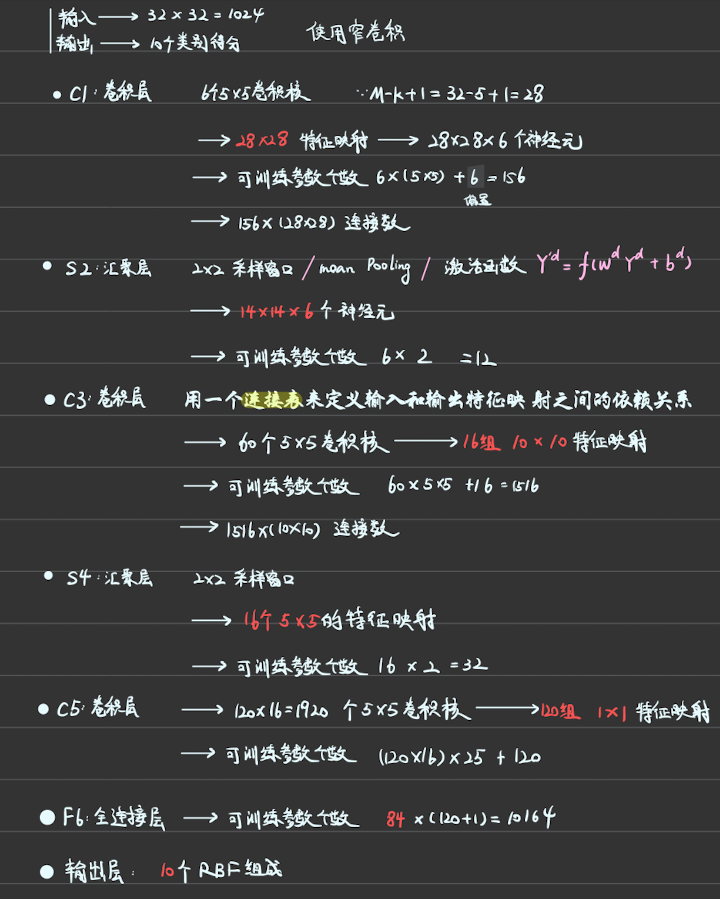 输入 → 32×32=1024
输出 → 10个类别得分
使用窄卷积
• C1:卷积层 6个5×5卷积核 ∵M-k+1=32-5+1=28
→ 28×28 特征映射 → 28×28×6个神经元
→ 可训练参数个数 6×(5×5)+6=156
偏置
→ 156×(28×28) 连接数
• S2:汇聚层 2×2 采样窗口 / mean Pooling / 激活函数 Y'ᵈ=f(wᵈYᵈ+bᵈ)
→ 14×14×6个神经元
→ 可训练参数个数 6×2 =12
• C3:卷积层 用一个连接表来定义输入和输出特征映射之间的依赖关系
→ 60个5×5卷积核 → 16组 10×10特征映射
→ 可训练参数个数 60×5×5+16=1516
→ 1516×(10×10) 连接数
• S4:汇聚层 2×2 采样窗口
→ 16个5×5的特征映射
→ 可训练参数个数 16×2=32
• C5:卷积层 → 120×16=1920 个5×5卷积核 → 120组 1×1 特征映射
→ 可训练参数个数 (120×16)×25+120
• F6:全连接层 → 可训练参数个数 84×(120+1)=10164
• 输出层: 10个RBF组成